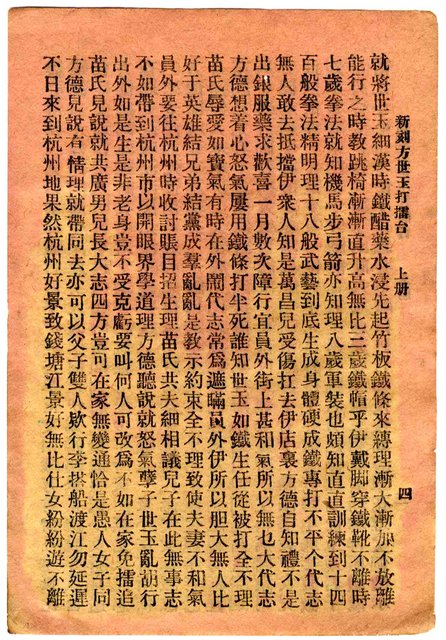 新刻方世玉打擂台 上册 四
就將世玉細漢時鐵醋藥水浸先起竹板鐵條來縛理漸大漸加不放離
能行之時教跳椅漸漸直升高無比三歲鐵帽乎伊戴脚穿鐵靴不離時
七歲拳法就知機馬步弓箭亦知理八歲軍裝也頗知直直訓練到十四
百般拳法精明理十八般武藝到底生成身體硬成鐵專打不平个代志
無人敢去抵擋伊衆人知是萬昌兒受傷扛去伊店裏方德自知禮不是
出銀服藥求歡喜一月數次障行宜員外街上甚和氣所以無乜大代志
方德想着心怒氣屢用鐵條打半死誰知世玉如鐵生任從被打全不理
苗氏辱愛如寶氣有時在外鬧代志常爲遮瞞員外伊所以胆大無人比
好于英雄結兄弟結黨成羣亂亂是教示約束全不理致使夫妻不和氣
員外要往杭州時收討賬目招生理苗氏共夫細相議兒子在此無事志
不如帶到杭州市以開眼界學道理方德聽說就怒氣孽子世玉亂胡行
出外如是生是非老身豈不受克虧要叫何人可改爲不如在家免擂追
苗氏見說就共廣男兒長大志四方豈可在家無變通恰是愚人女子同
方德見說有情理就帶同去亦可以父子雙人欵行李搭船渡江勿延遲
不日來到杭州地果然杭州好景致錢塘江景好無比仕女紛紛遊不離